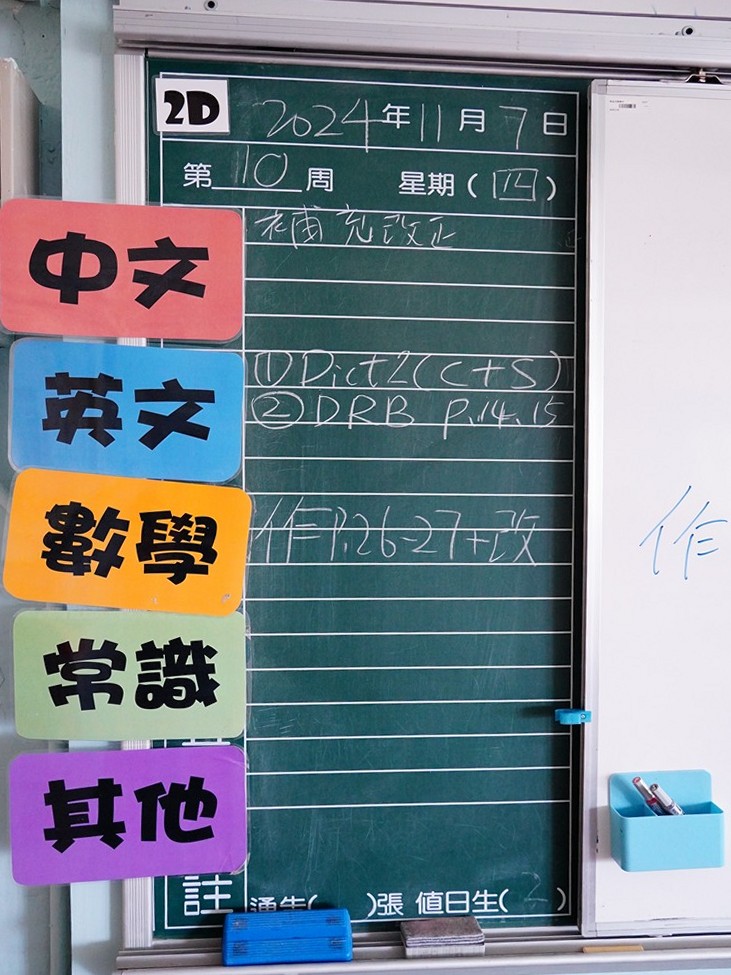 2D 2024年11月7日
第10周 星期(四)
中文 補充改正
英文 ① Dict 2 (C+S)
② DRB P.14, 15
數學 作P.26-27+改
常識
其他
註 通告( )張 值日生(2)
作